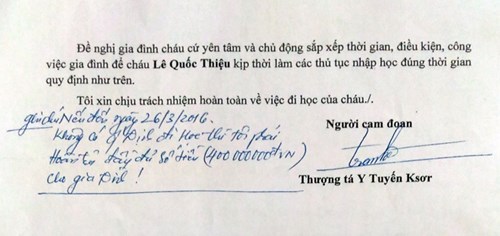 Đề nghị gia đình cháu cứ yên tâm và chủ động sắp xếp thời gian, điều kiện, công
việc gia đình để cháu Lê Quốc Thiệu kịp thời làm các thủ tục nhập học đúng thời gian
quy định như trên.
Tôi xin chịu trách nhiệm hoàn toàn về việc đi học của cháu./.
ghi chú Nếu đến ngày 26/3/2016
Không có q Định đi Học thì tôi phải
Hoàn trả đầy đủ số tiền (400 000000đ VN)
cho gia Đình !
Người cam đoan
Thượng tá Y Tuyến Ksơr